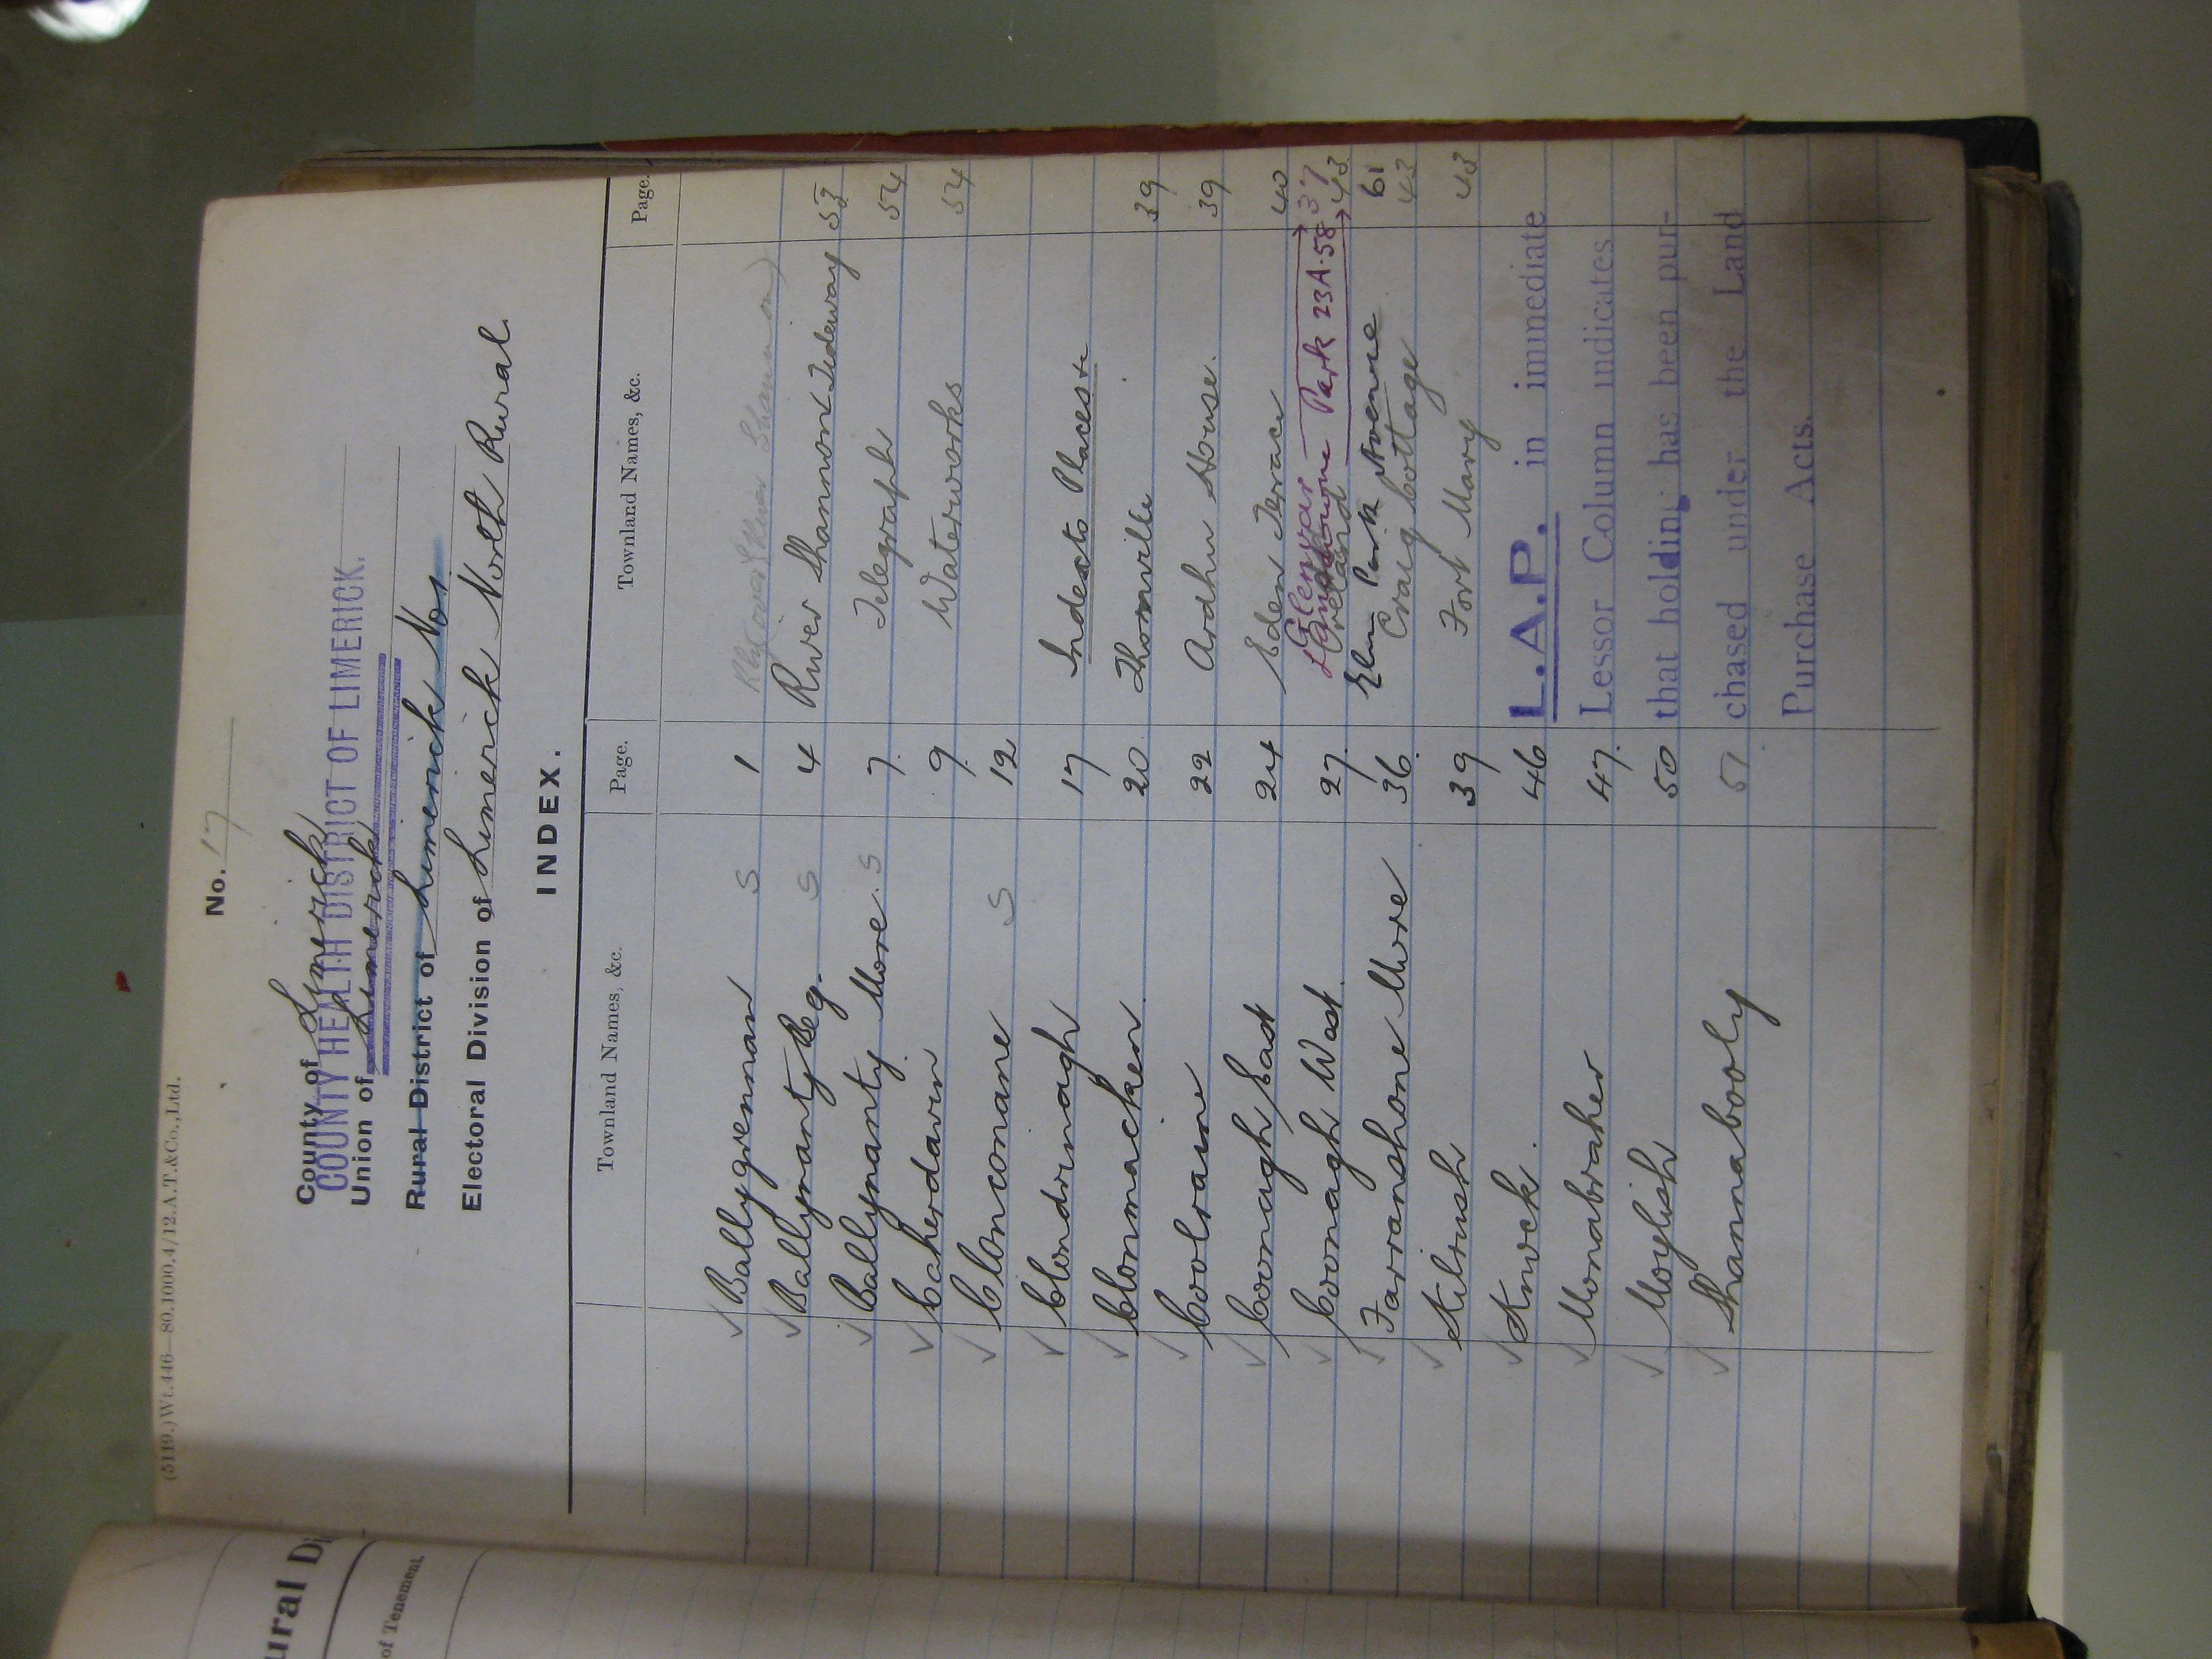 (5119.)Wt.446—80.1000.4/12.A.T.&Co.,Ltd.
No. 17
County of Limerick
COUNTY HEALTH DISTRICT OF LIMERICK.
Union of Limerick
Rural District of Limerick No 1
Electoral Division of Limerick North Rural.
INDEX.
Townland Names, &c. Page. Townland Names, &c. Page.
Ballygrennan S 1
Ballynanty Beg. S 4 River Shannon Tideway 53
Ballynanty More. S 7. Telegraph 54
Caherdavin 9. Waterworks 54
Clonconane S 12
Clondrinagh 17 Index to Places &c
Clonmacken 20. Thornville 39
Coolraine 22 Ardhu House. 39
Coonagh East 24 Eden Terrace 40
Glenvar 37
Coonagh West. 27. Lansdowne Park 23A.58
Ireland 43
Elm Park Avenue 61
Farranshone More 36. Craig Cottage 43
Kilrush 39 Fort Mary 43
Knock. 46 L.A.P. in immediate
Monabraher 47. Lessor Column indicates
Moylish 50 that holding has been pur-
Shannabooly 51 chased under the Land
Purchase Acts.
ural Di
of Tenement.